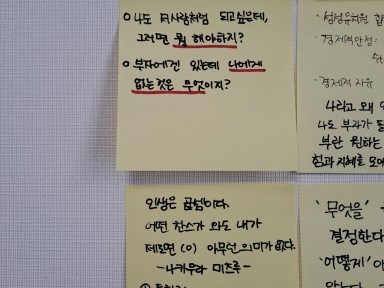 나도 저사람처럼 되고싶은데,
그러면 뭘 해야하지?
부자에겐 있는데 나에게
없는것은 무엇이지?
· 경제적안정:
· 경제적 자유
나라고 왜
나도 부자가
부란 원하는
힘과 지혜를
인생은 곱셈이다.
어떤 찬스가 와도 내가
제로면 (0) 아무런 의미가 없다.
-나카무라 미츠루-
'무엇을'
결정한다
'어떻게'